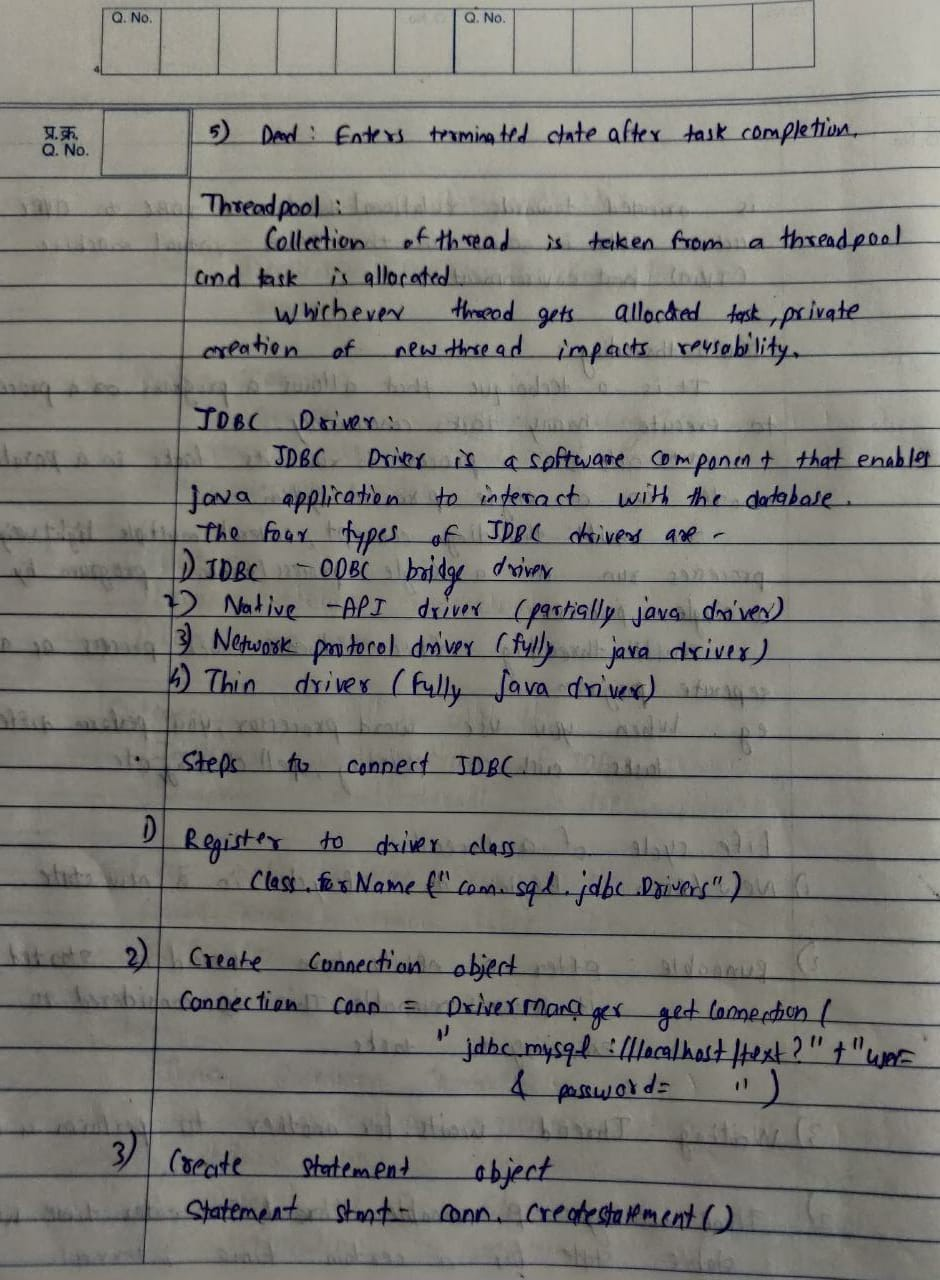 Q. No.
Q. No.
प्र.क्र.
Q. No.
5) Dead : Enters terminated state after task completion.
Threadpool :
Collection of thread is taken from a threadpool
and task is allocated
Whichever thread gets allocated task, private
creation of new thread impacts reusability.
JDBC Driver :
JDBC Driver is a software component that enables
java application to interact with the database.
The four types of JDBC drivers are -
1) JDBC - ODBC bridge driver
2) Native -API driver (partially java driver)
3) Network protocol driver (fully java driver)
4) Thin driver (fully Java driver)
Steps to connect JDBC
1) Register to driver class
Class.forName ("com.sql.jdbc.Drivers")
2) Create Connection object
Connection conn = DriverManager get Connection (
"jdbc.mysql :///localhost/text?" + "user=
& password= ")
3) Create statement object
Statement stmt= conn. createstatement ()